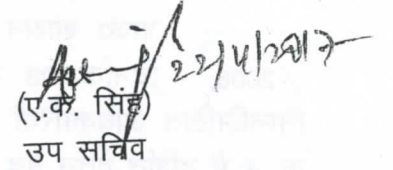 22/5/2017
(ए.के. सिंह)
उप सचिव